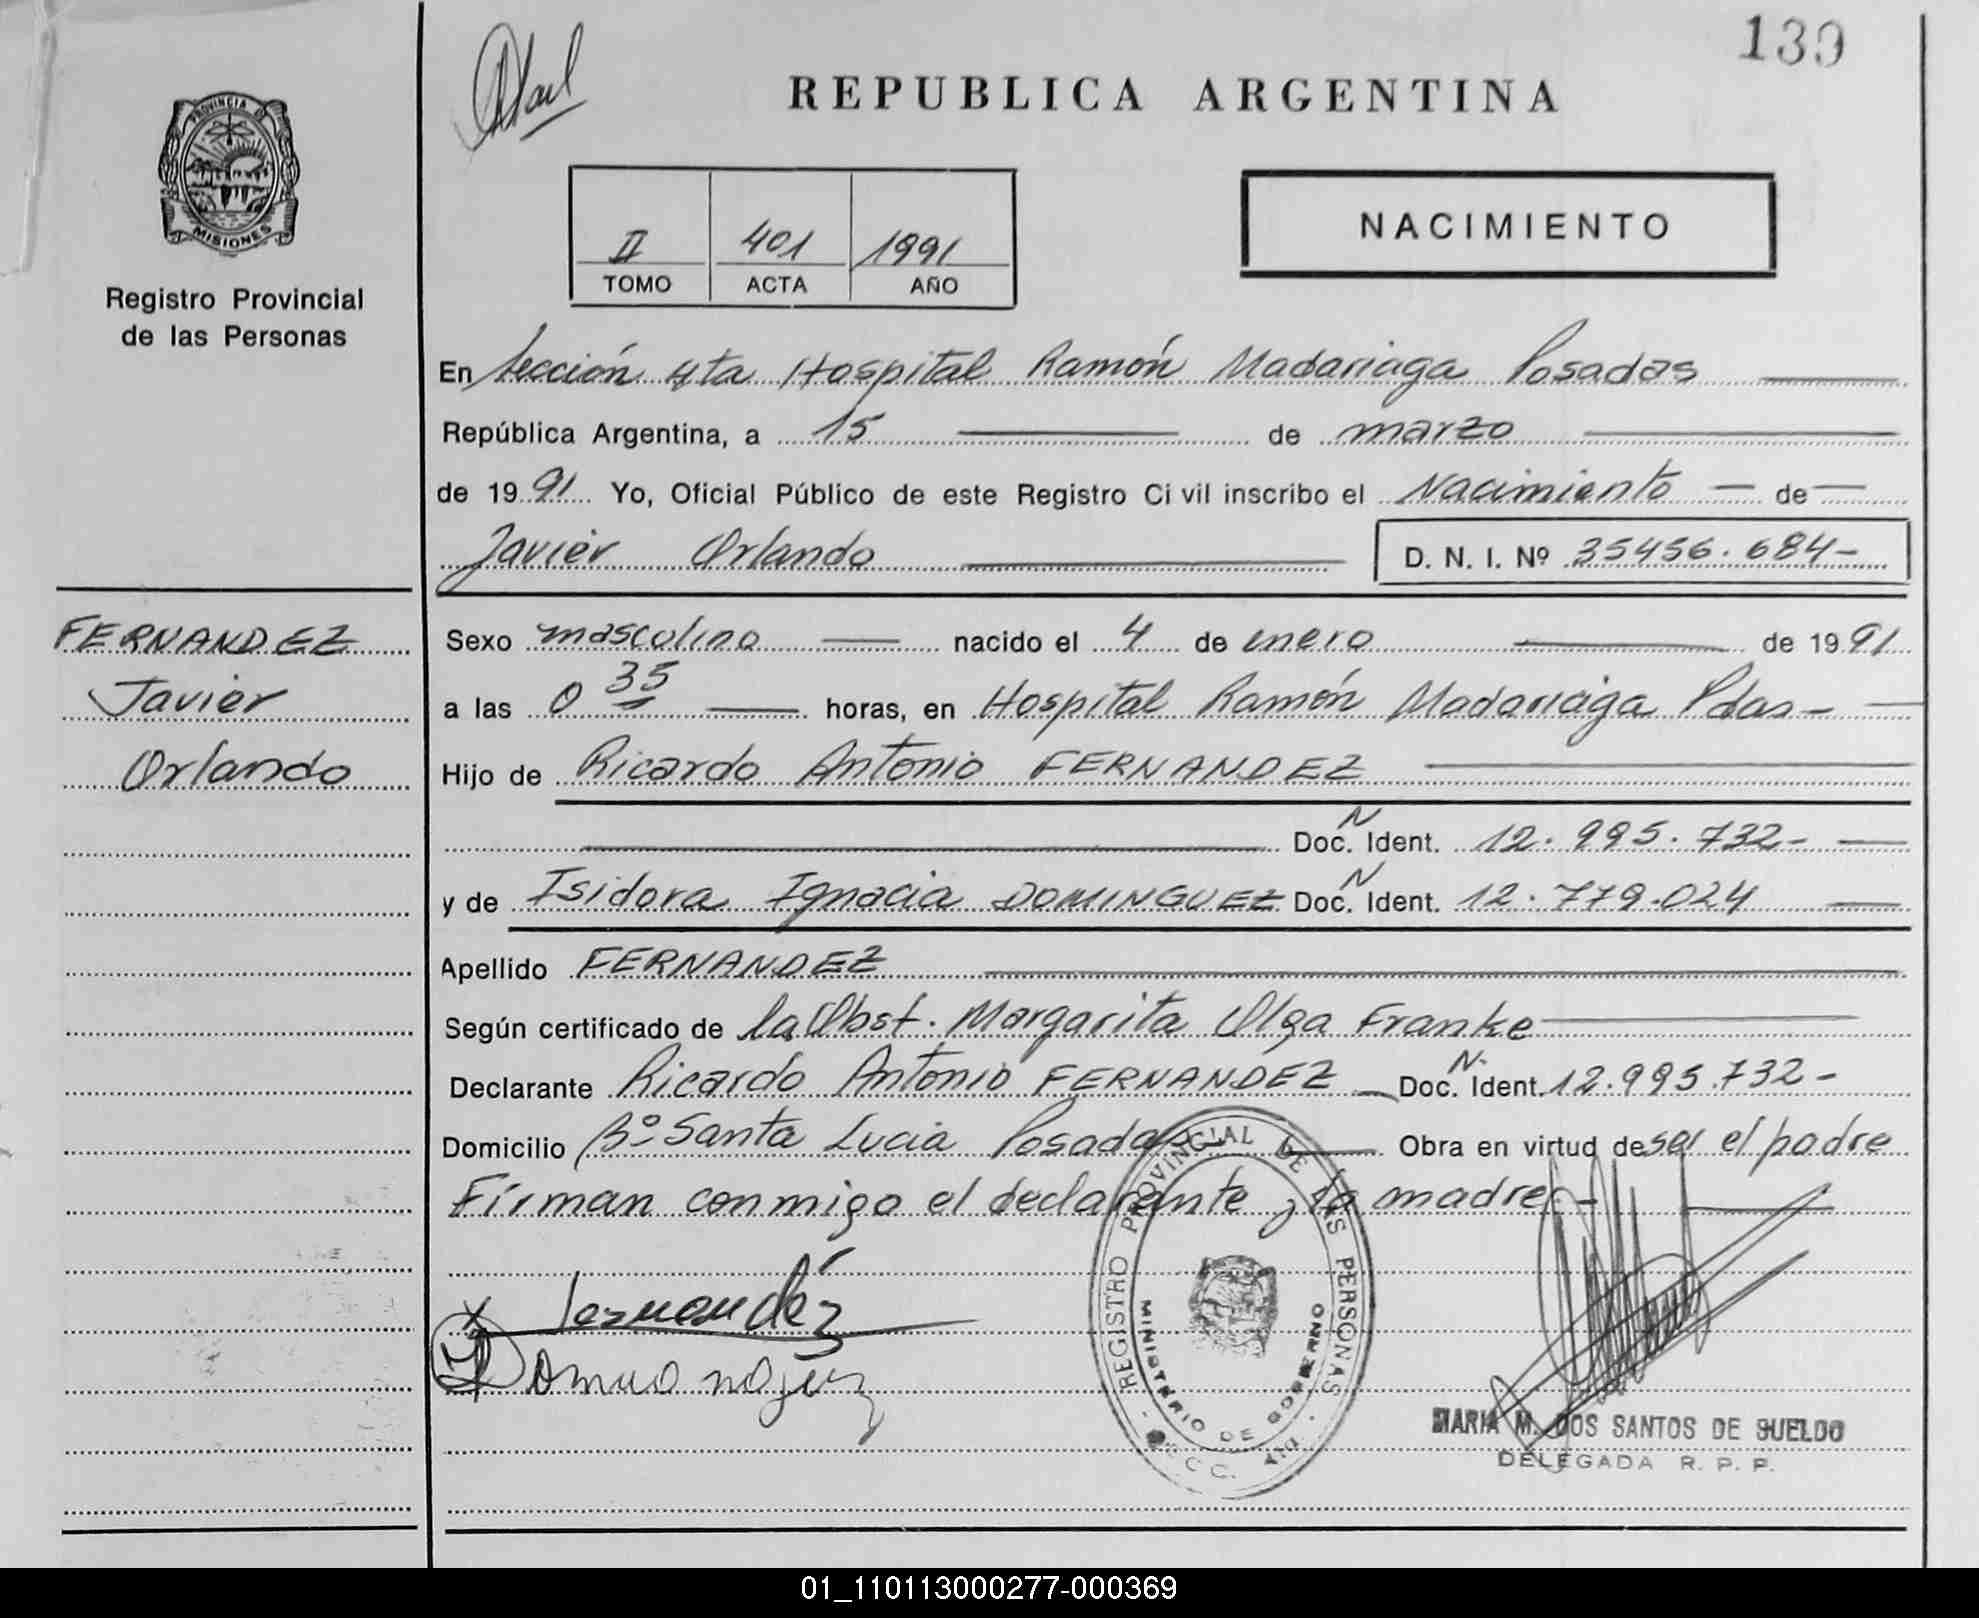 139
REPUBLICA ARGENTINA
PROVINCIA DE
MISIONES
Registro Provincial
de las Personas
II 401 1991
TOMO ACTA AÑO
NACIMIENTO
En Sección 4ta Hospital Ramón Madariaga Posadas
República Argentina, a 15 de marzo
de 1991 Yo, Oficial Público de este Registro Civil inscribo el Nacimiento de
Javier Orlando D. N. I. Nº 35456.684-
FERNANDEZ
Javier
Orlando
Sexo masculino nacido el 4 de enero de 1991
a las 0 35 horas, en Hospital Ramón Madariaga Pdas-
Hijo de Ricardo Antonio FERNANDEZ
Doc. N Ident. 12.995.732-
y de Isidora Ignacia DOMINGUEZ Doc. N Ident. 12.779.024
Apellido FERNANDEZ
Según certificado de la Obst. Margarita Olga Franke
Declarante Ricardo Antonio FERNANDEZ Doc. N. Ident. 12.995.732-
Domicilio Bº Santa Lucia Posadas- Obra en virtud de ser el padre
Firman conmigo el declarante y la madre.-
X Fernandéz
REGISTRO PROVINCIAL DE LAS PERSONAS
MINISTERIO DE GOBIERNO
MARIA M. DOS SANTOS DE SUELDO
DELEGADA R. P. P.
01_110113000277-000369